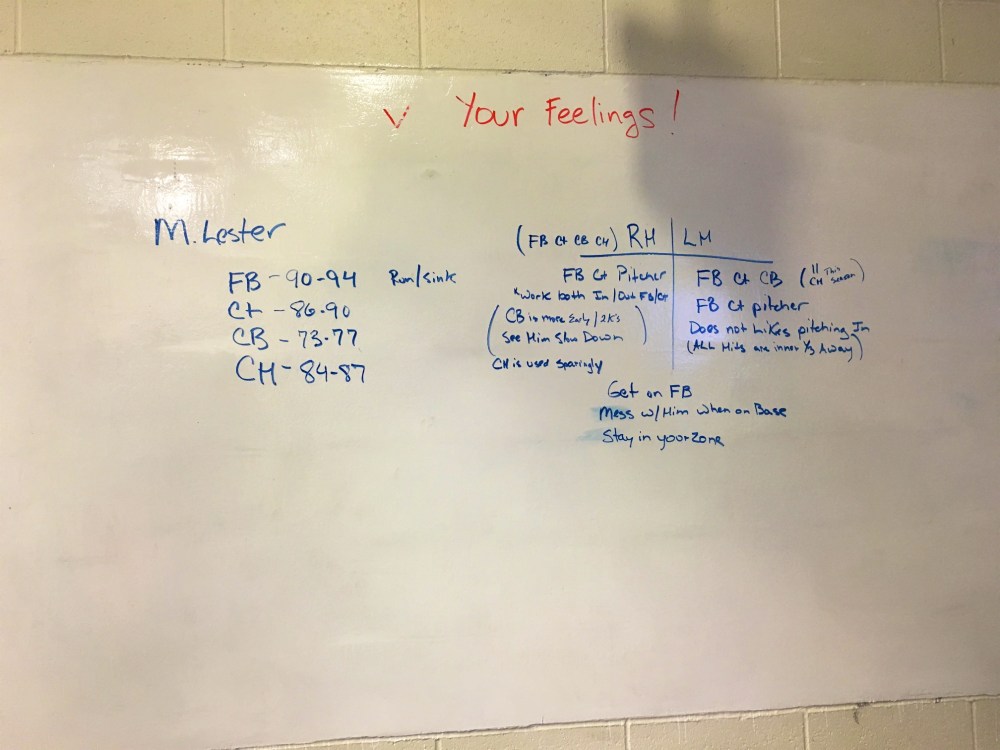 ✓ Your Feelings!
M. Lester
FB - 90-94 Run/sink
Ct - 86-90
CB - 73-77
CH - 84-87
(FB Ct CB CH) RH | LH
FB Ct Pitcher
*Work both In/Out FB/Ct
(CB is more Early/2K's
See Him Slow Down)
CH is used sparingly
FB Ct CB (11 CH This season)
FB Ct pitcher
Does not Likes pitching In
(ALL Hits are inner ⅓ Away)
Get on FB
Mess w/Him when on Base
Stay in your zone